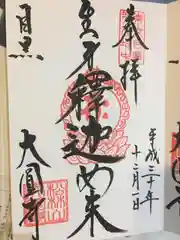 奉拝
平成三十年
十二月一日
生身釋迦如来
目黒
大圓寺